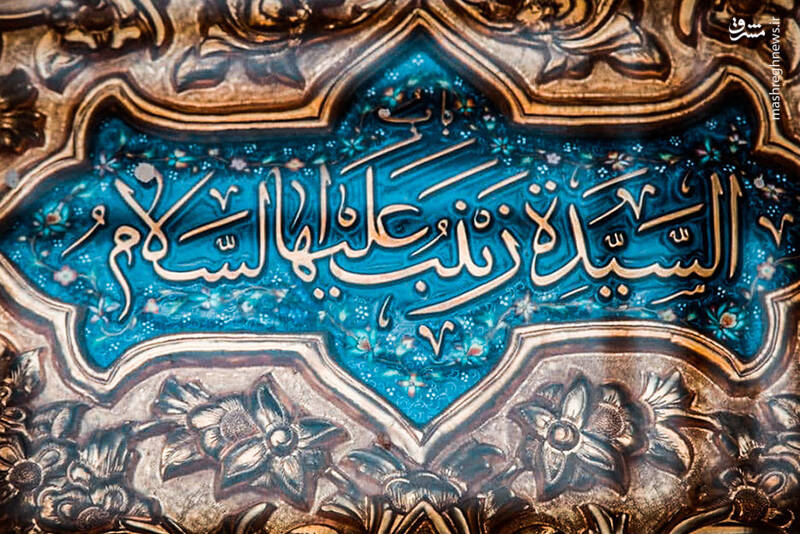 باب
السَّيِّدَةِ زَيْنَبُ عَلَيْهَا السَّلَامُ
مشرق
mashreghnews.ir